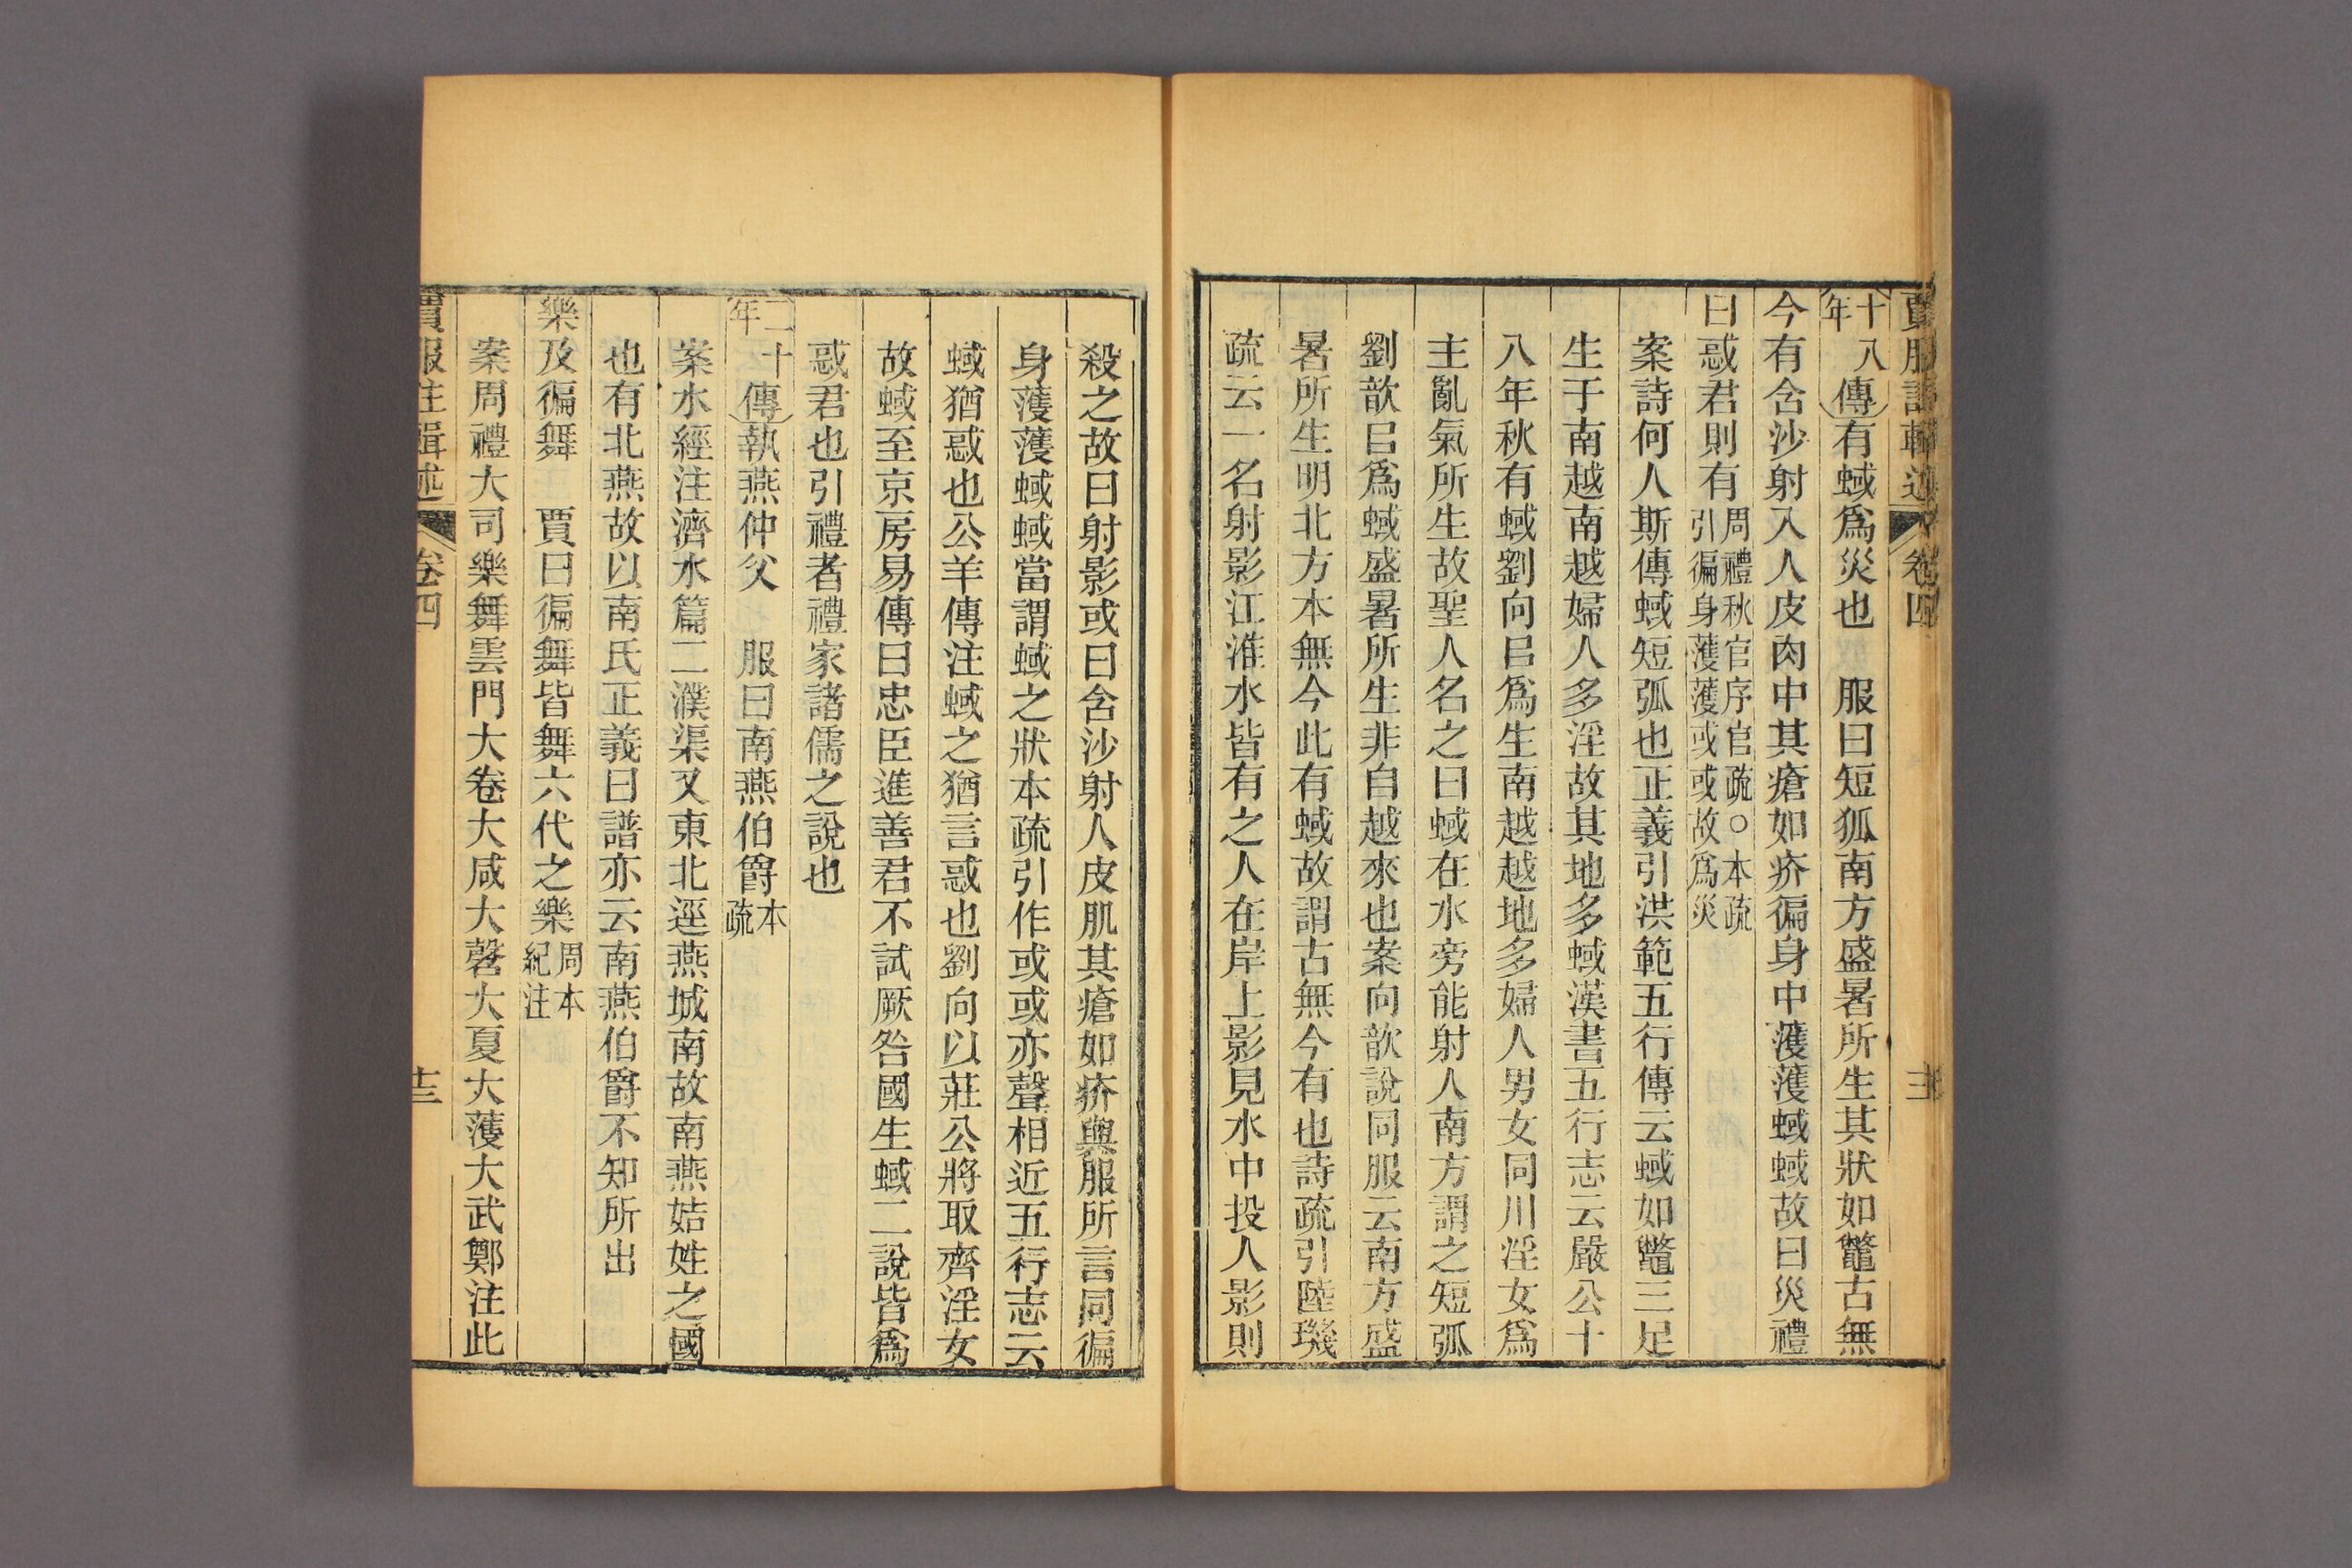 賈服註輯述 卷四
十八年傳有蜮爲災也 服曰短狐南方盛暑所生其狀如鼈古無
今有含沙射入人皮肉中其瘡如疥徧身中濩濩蜮蜮故曰災禮
曰惑君則有周禮秋官序官疏○本疏引徧身濩濩或或故爲災
案詩何人斯傳蜮短弧也正義引洪範五行傳云蜮如鼈三足
生于南越南越婦人多淫故其地多蜮漢書五行志云嚴公十
八年秋有蜮劉向㠯爲生南越越地多婦人男女同川淫女爲
主亂氣所生故聖人名之曰蜮在水旁能射人南方謂之短弧
劉歆㠯爲蜮盛暑所生非自越來也案向歆說同服云南方盛
暑所生明北方本無今此有蜮故謂古無今有也詩疏引陸璣
疏云一名射影江淮水皆有之人在岸上影見水中投人影則
殺之故曰射影或曰含沙射人皮肌其瘡如疥與服所言同徧
身濩濩蜮蜮當謂蜮之狀本疏引作或或亦聲相近五行志云
蜮猶惑也公羊傳注蜮之猶言惑也劉向以莊公將取齊淫女
故蜮至京房易傳曰忠臣進善君不試厥咎國生蜮二說皆爲
惑君也引禮者禮家諸儒之說也
二十年傳執燕仲父 服曰南燕伯爵本疏
案水經注濟水篇二濮渠又東北逕燕城南故南燕姞姓之國
也有北燕故以南氏正義曰譜亦云南燕伯爵不知所出
樂及徧舞 賈曰徧舞皆舞六代之樂周本紀注
案周禮大司樂舞雲門大卷大咸大磬大夏大濩大武鄭注此
賈服注輯述 卷四 十三